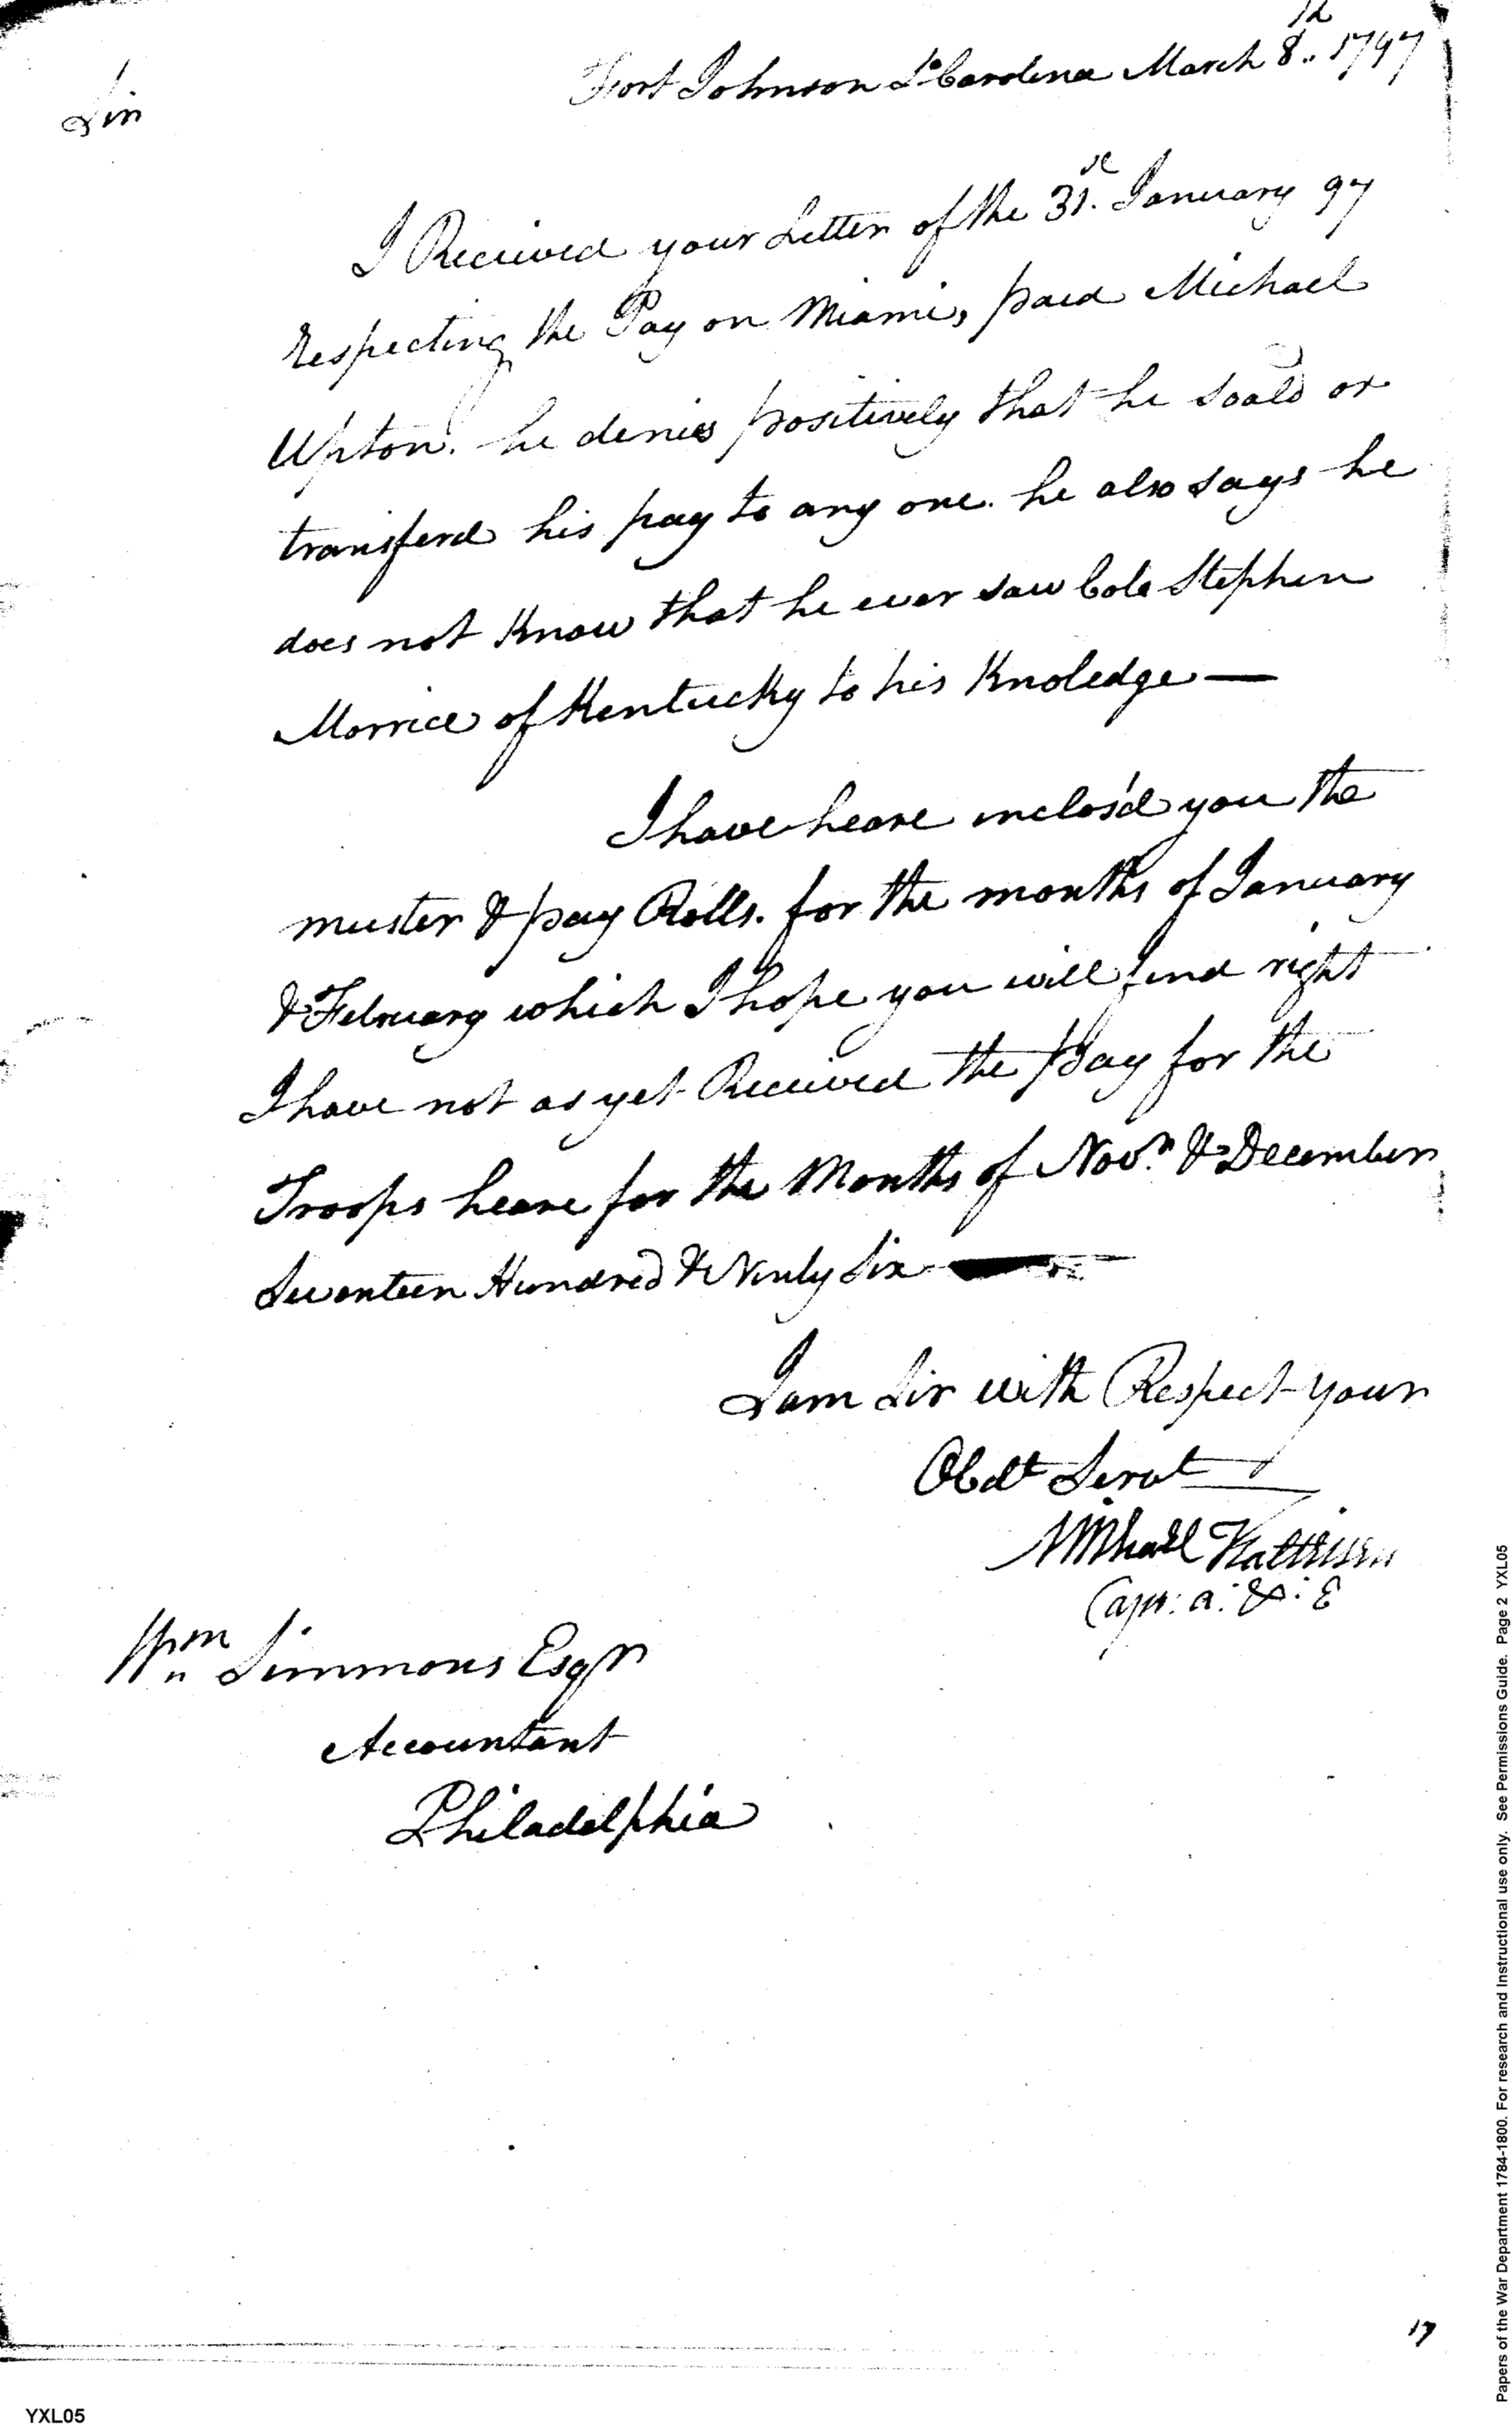 Fort Johnson So Carolina March 8th 1797
Sir
I Recieved your Letter of the 31st January 97
respecting the Pay on Miami, paid Michael
Upton. he denies positively that he soald or
transferd his pay to any one. he also says he
does not Know that he ever saw Colo Stephen
Morrice of Kentucky to his Knoledge —
I have heare inclos'd you the
muster & pay Rolls. for the months of January
& February which I hope you will find right
I have not as yet Received the pay for the
Troops heare for the Months of Novr & December
Seventeen Hundred & Ninty Six —
I am Sir with Respect your
Obdt Servt
Michael Kalteisen
Capt: a: & : E
Wm Simmons Esqr
Accountant
Philadelphia
17
YXL05
Papers of the War Department 1784-1800. For research and Instructional use only. See Permissions Guide. Page 2 YXL05